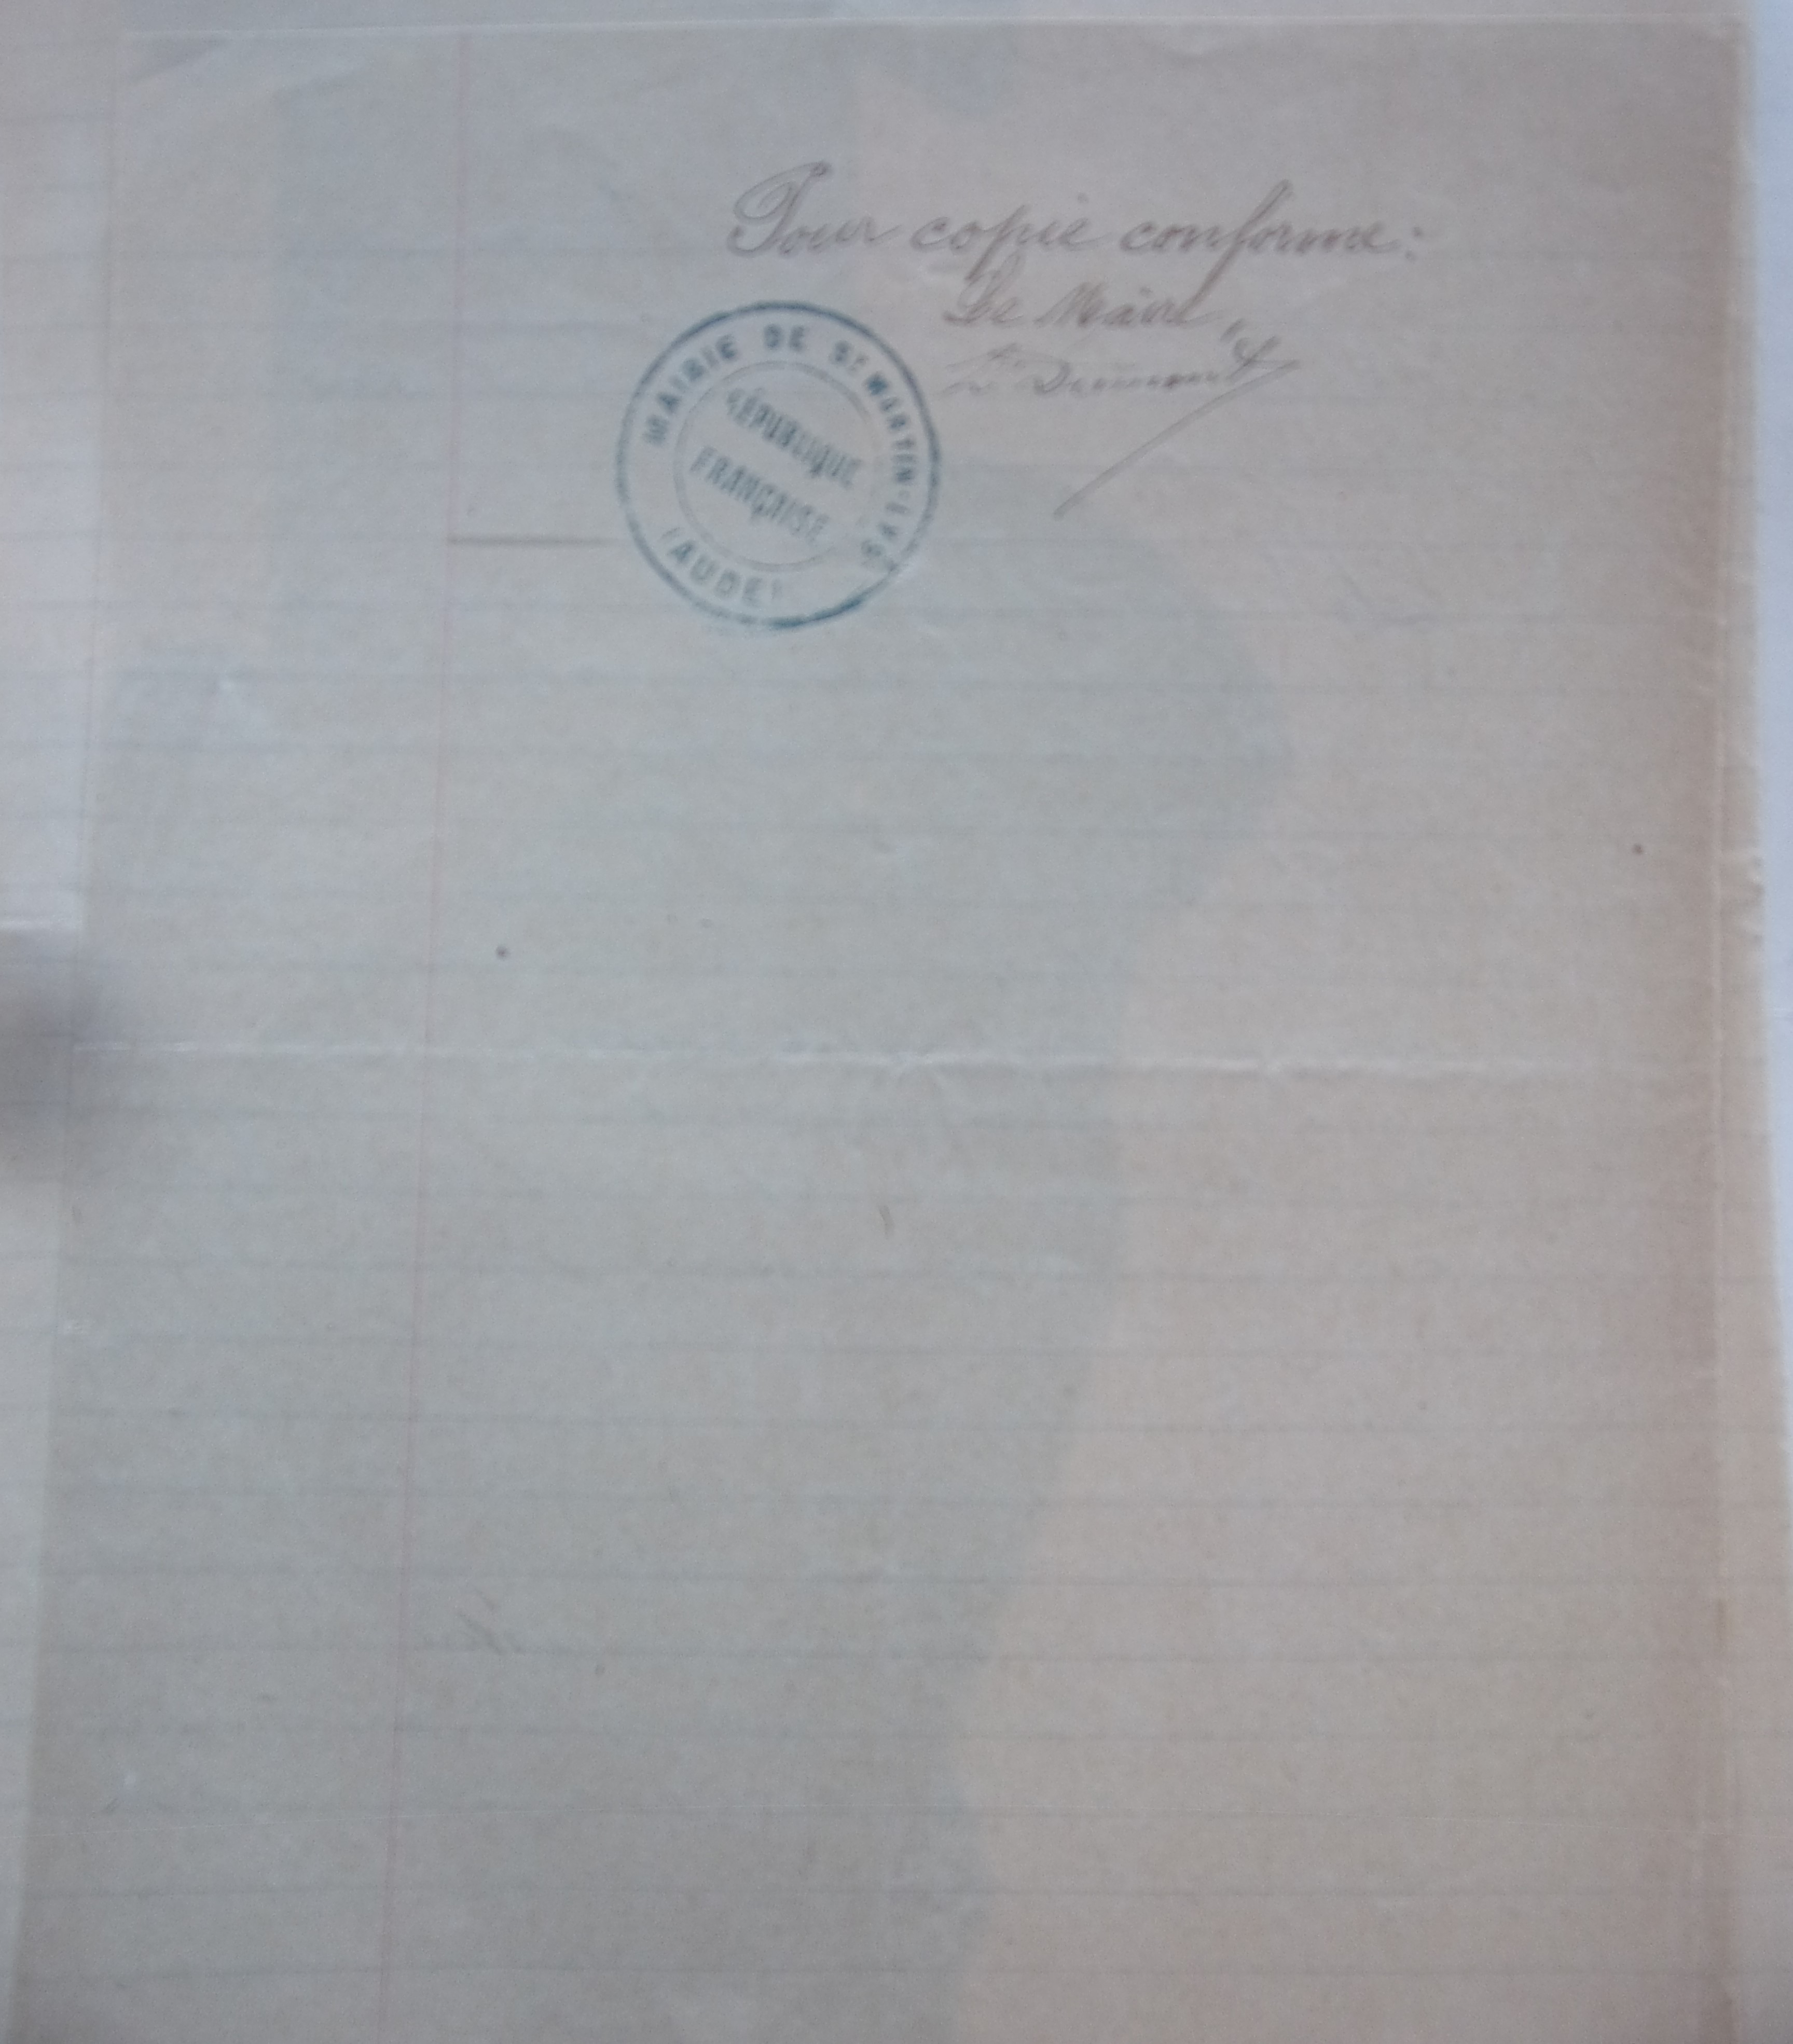 Pour copie conforme:
Le Maire,
MAIRIE DE ST MARTIN-LYS
RÉPUBLIQUE
FRANÇAISE
(AUDE)